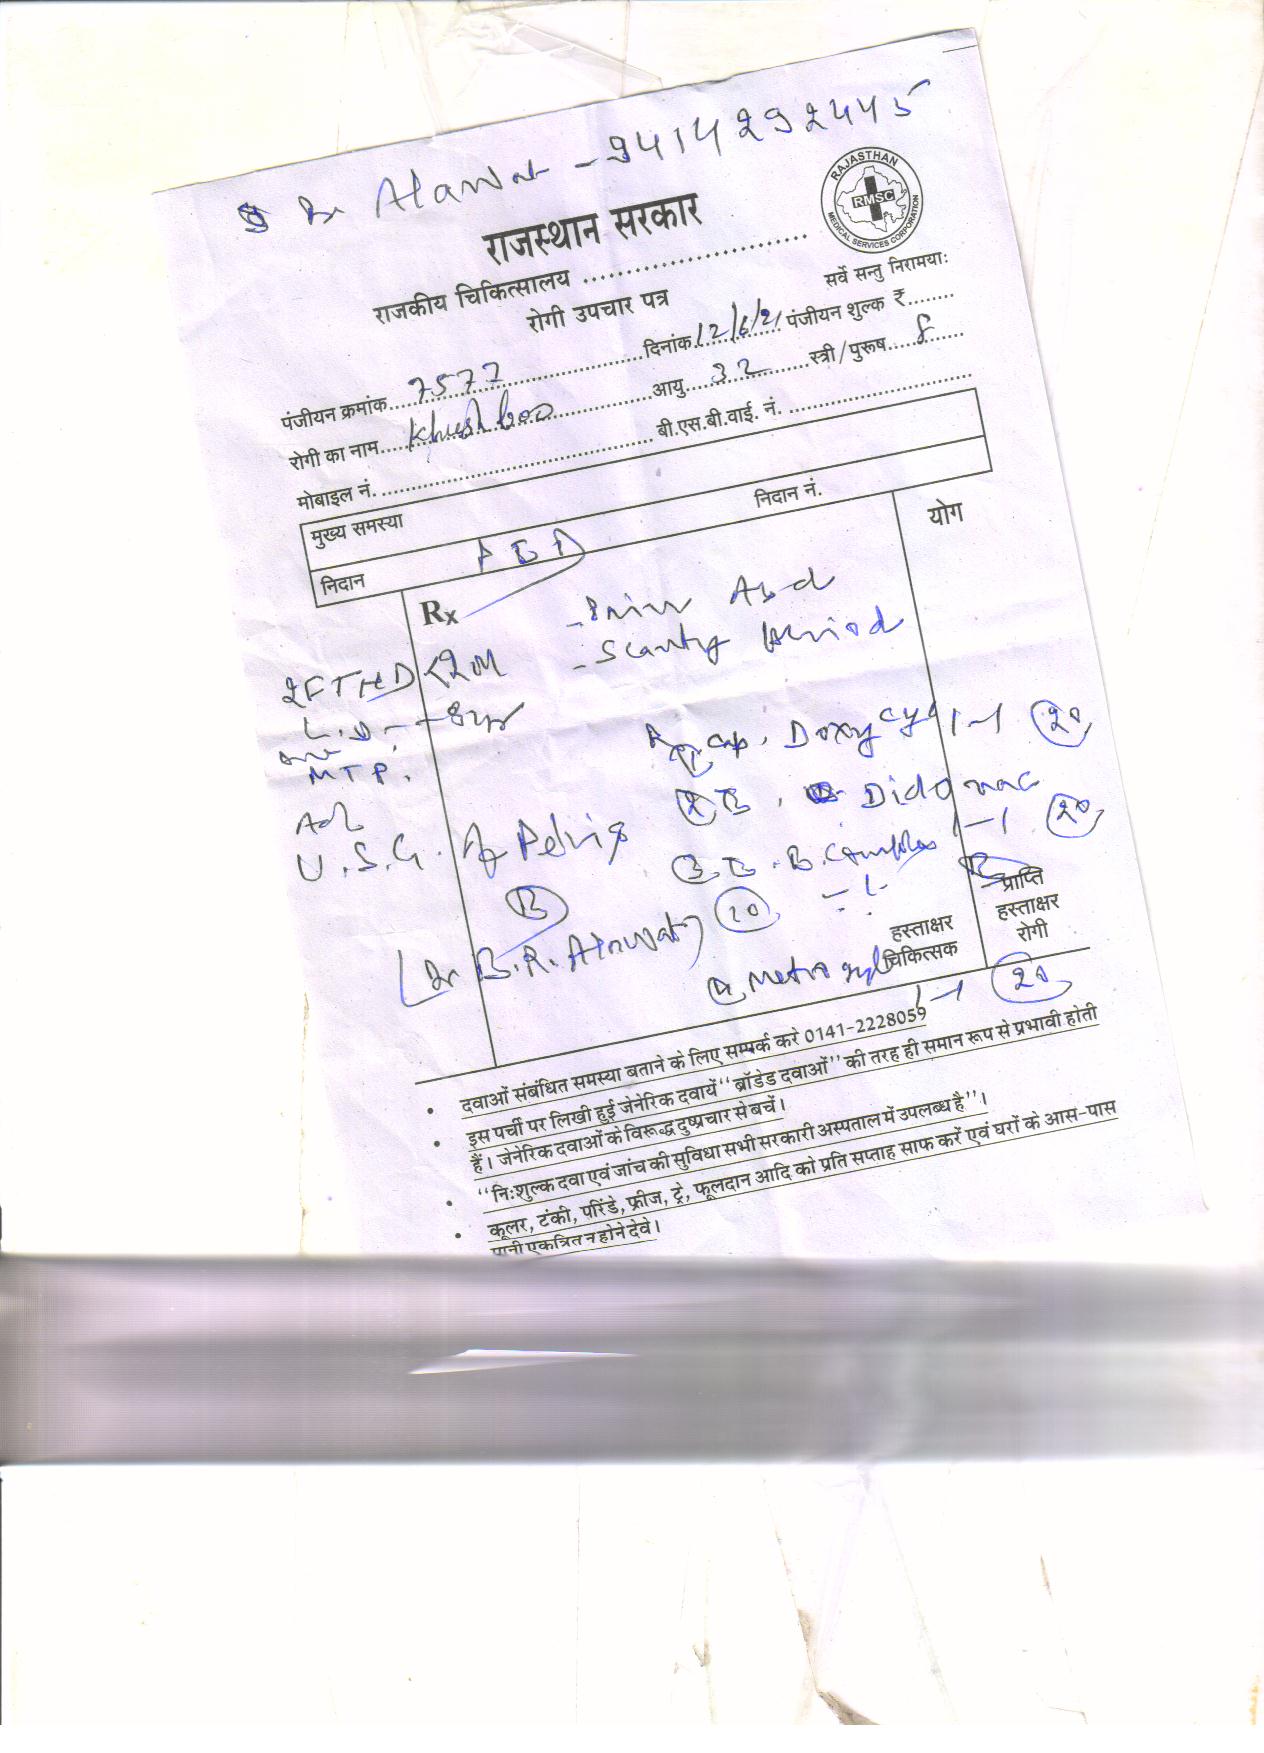 Dr Alawat - 9414292445
RAJASTHAN
RMSC
MEDICAL SERVICES CORPORATION
राजस्थान सरकार
राजकीय चिकित्सालय ........................
सर्वे सन्तु निरामयाः
रोगी उपचार पत्र
पंजीयन क्रमांक 7577 दिनांक 12/6/21 पंजीयन शुल्क ₹........
रोगी का नाम Khushboo आयु 32 स्त्री/पुरूष F
मोबाइल नं. ........................ बी.एस.बी.वाई. नं. ........................
मुख्य समस्या
निदान नं.
निदान PID
योग
Rx
- Pain Abd
- Scanty Period
2FTND 2M
L.D. - 8yr
MTP.
Adv
U.S.G. of Pelvis
(Dr B.R. Alawat)
(1) Cap. Doxycycl 1-1 (20)
(2) Diclonac 1-1 (20)
(3) B. Complex
-1- (10)
(4) Metrogyl 1-1 (20)
हस्ताक्षर
चिकित्सक
प्राप्ति
हस्ताक्षर
रोगी
• दवाओं संबंधित समस्या बताने के लिए सम्पर्क करे 0141-2228059
• इस पर्ची पर लिखी हुई जेनेरिक दवायें "ब्रॉडेड दवाओं" की तरह ही समान रूप से प्रभावी होती
हैं। जेनेरिक दवाओं के विरूद्ध दुष्प्रचार से बचें।
• "निःशुल्क दवा एवं जांच की सुविधा सभी सरकारी अस्पताल में उपलब्ध है"।
• कूलर, टंकी, परिंडे, फ्रीज, ट्रे, फूलदान आदि को प्रति सप्ताह साफ करें एवं घरों के आस-पास
पानी एकत्रित न होने देवे।